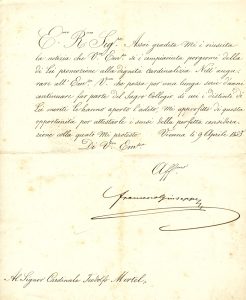 Em.º R.mo Sig.re Assai gradita Mi è riuscita
la notizia che V.a Em.za si è compiaciuta porgermi della
di Lei promozione alla dignità Cardinalizia. Nell' augu-
rare all' Em.za V.a che possa per una lunga serie d'anni
continuare a far parte del Sagro Collegio di cui i distinti di
Lei meriti le hanno aperto l'adito, Mi approfitto di questa
opportunità per attestarle i sensi della perfetta considera-
zione colla quale Mi protesto. Vienna li 9 Aprile 1858
Di V.a Em.za
Aff.mo
Francesco Giuseppe
Al Signor Cardinale Teodolfo Mertel.